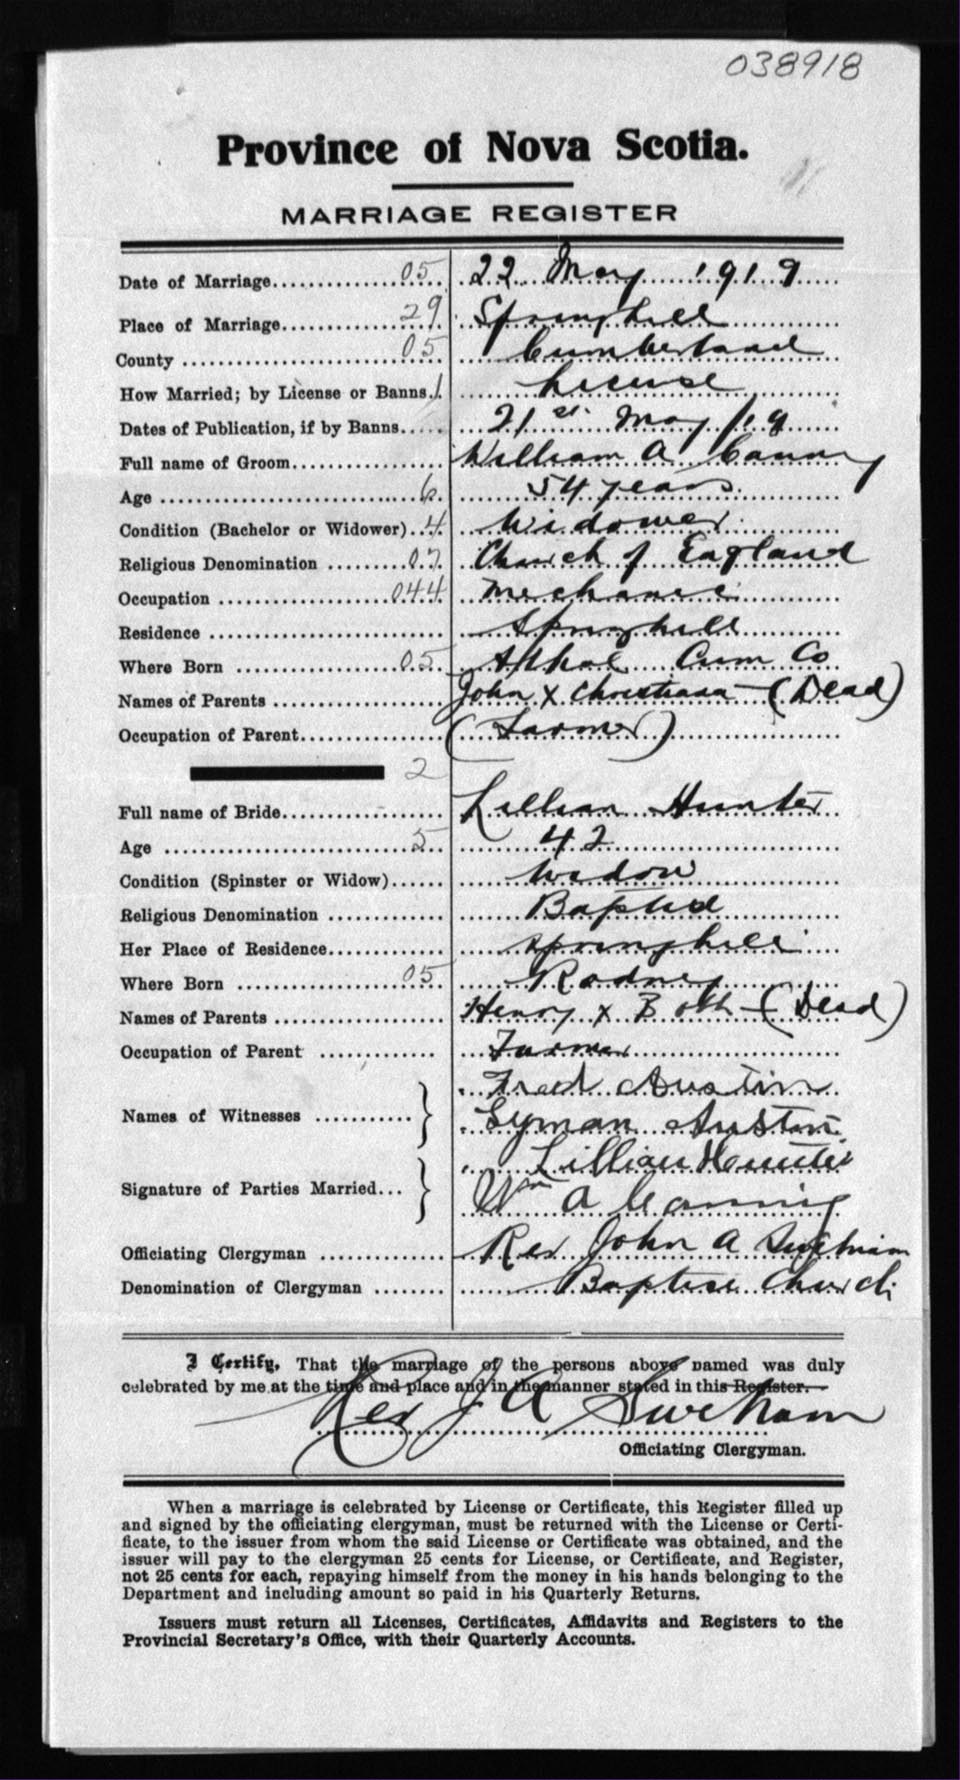 038918
Province of Nova Scotia.
MARRIAGE REGISTER
Date of Marriage 05 22 May 1919
Place of Marriage 29 Springhill
County 05 Cumberland
How Married; by License or Banns 1 License
Dates of Publication, if by Banns 21st May /19
Full name of Groom William A Canning
Age 6 54 years
Condition (Bachelor or Widower) 4 Widower
Religious Denomination 07 Church of England
Occupation 044 Mechanic
Residence Springhill
Where Born 05 Athol Cum Co
Names of Parents John x Christiana - (Dead)
Occupation of Parent (Farmer)
2
Full name of Bride Lillian Hunter
Age 5 42
Condition (Spinster or Widow) Widow
Religious Denomination Baptist
Her Place of Residence Springhill
Where Born 05 Rodney
Names of Parents Henry x - (Dead)
Occupation of Parent Farmer
Names of Witnesses } Fred Austin
Lyman Austin
Signature of Parties Married... } Lillian Hunter
Wm A Canning
Officiating Clergyman Rev John A
Denomination of Clergyman Baptist Church
I Certify, That the marriage of the persons above named was duly
celebrated by me at the time and place and in the manner stated in this Register.
Rev J A
Officiating Clergyman.
When a marriage is celebrated by License or Certificate, this Register filled up
and signed by the officiating clergyman, must be returned with the License or Certi-
ficate, to the issuer from whom the said License or Certificate was obtained, and the
issuer will pay to the clergyman 25 cents for License, or Certificate, and Register,
not 25 cents for each, repaying himself from the money in his hands belonging to the
Department and including amount so paid in his Quarterly Returns.
Issuers must return all Licenses, Certificates, Affidavits and Registers to the
Provincial Secretary's Office, with their Quarterly Accounts.